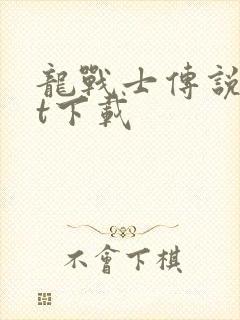 龍戰士傳說
t下載
不會下棋